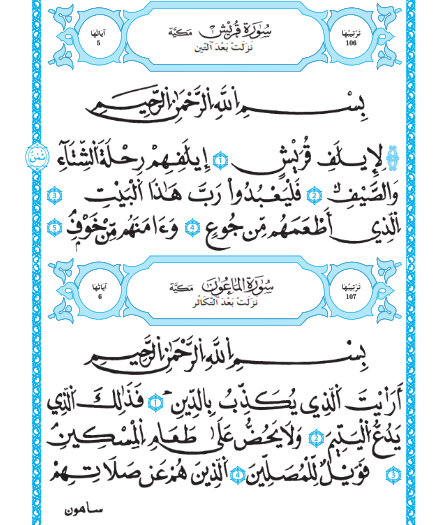 ترتيبها
106
سُورَةُ قُرَيْشٍ مَكِّيَّة
نَزَلَتْ بَعْدَ التِّين
آياتها
5
بِسْمِ اللَّهِ الرَّحْمَٰنِ الرَّحِيمِ
لِإِيلَٰفِ قُرَيْشٍ 1 إِيلَٰفِهِمْ رِحْلَةَ اَلشِّتَآءِ
ثمن
وَالصَّيْفِ 2 فَلْيَعْبُدُواْ رَبَّ هَٰذَا اَلْبَيْتِ 3
اِلذِي أَطْعَمَهُم مِّن جُوعٍ 4 وَءَامَنَهُم مِّنْ خَوْفٍ 5
ترتيبها
107
سُورَةُ الْمَاعُونِ مَكِّيَّة
نَزَلَتْ بَعْدَ التَّكَاثُر
آياتها
6
بِسْمِ اللَّهِ الرَّحْمَٰنِ الرَّحِيمِ
أَرَٰيْتَ اَلذِي يُكَذِّبُ بِالدِّينِ 1 فَذَٰلِكَ اَلذِي
يَدُعُّ اُلْيَتِيمَ 2 وَلَا يَحُضُّ عَلَىٰ طَعَامِ اِلْمِسْكِينِ
3 فَوَيْلٌ لِّلْمُصَلِّينَ 4 اَلذِينَ هُمْ عَن صَلَاتِهِمْ
ساهون